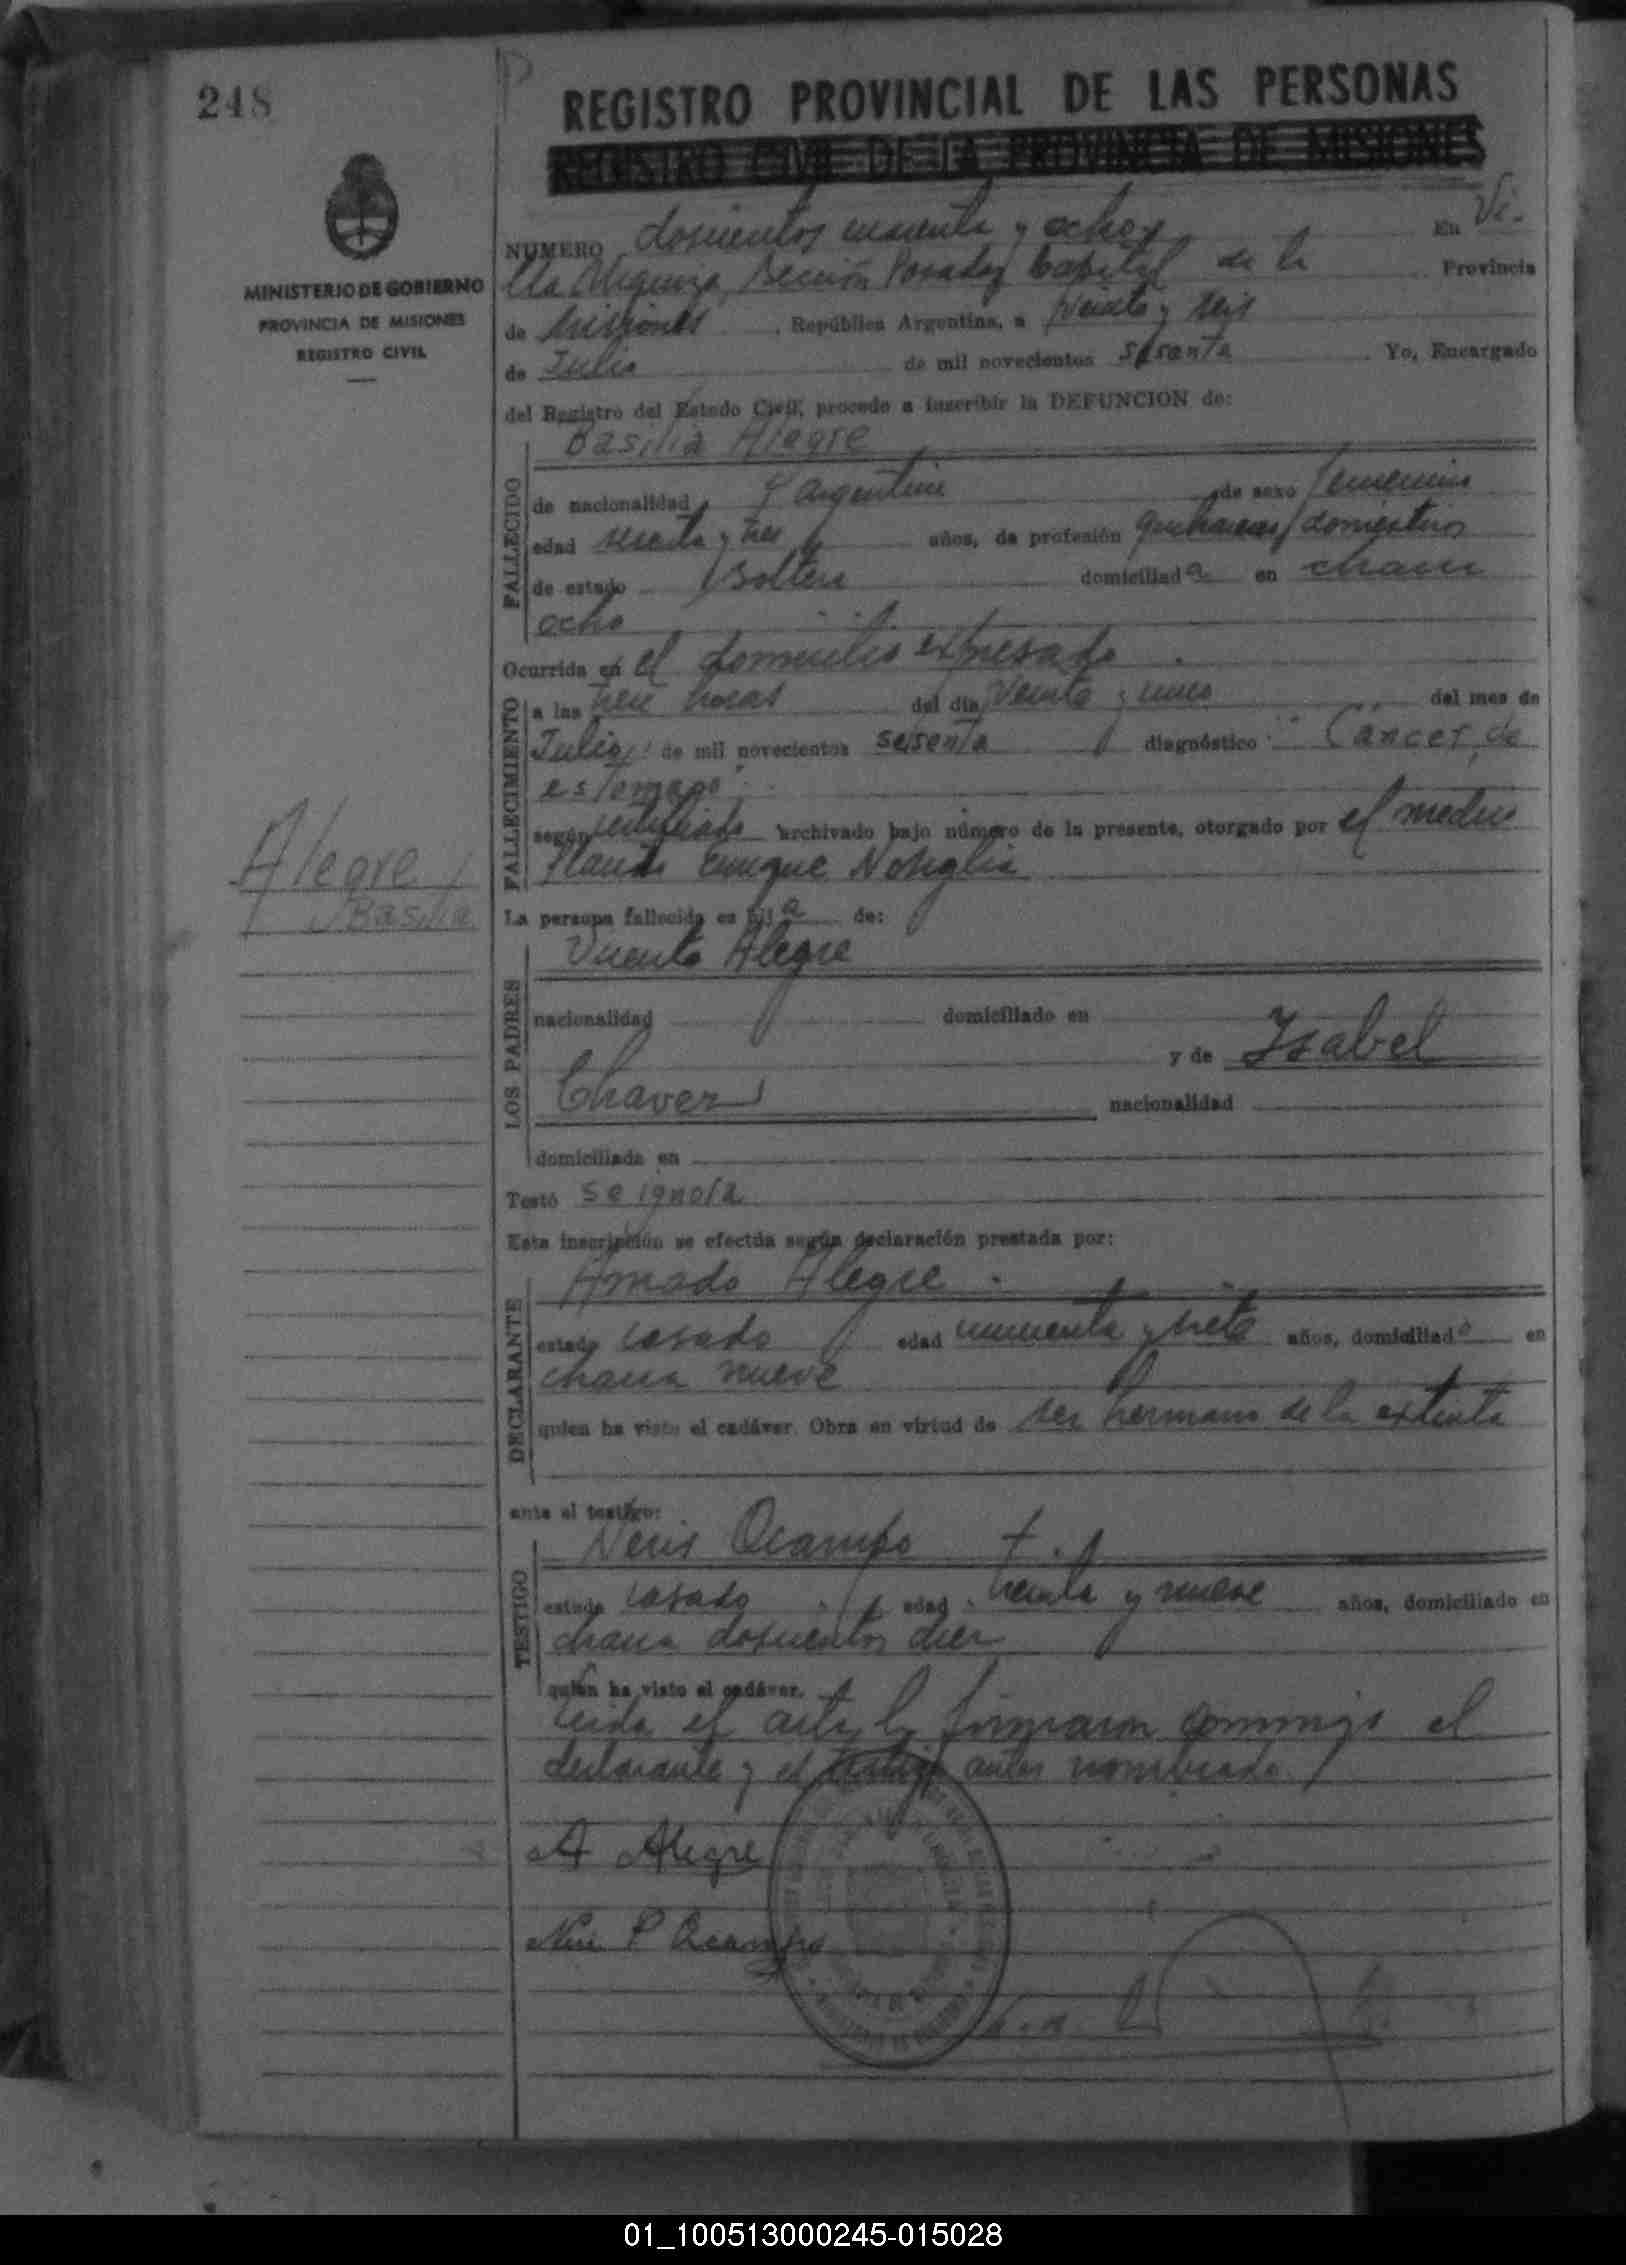 248
REGISTRO PROVINCIAL DE LAS PERSONAS
REGISTRO CIVIL DE LA PROVINCIA DE MISIONES
MINISTERIO DE GOBIERNO
PROVINCIA DE MISIONES
REGISTRO CIVIL
NUMERO doscientos cuarenta y ocho En Vi-
lla Urquiza, Sección Posadas Capital de la Provincia
de Misiones, República Argentina, a veinte y seis
de Julio de mil novecientos sesenta. Yo, Encargado
del Registro del Estado Civil, procedo a inscribir la DEFUNCION de:
Basilia Alegre
FALLECIDO
de nacionalidad argentina de sexo femenino
edad sesenta y tres años, de profesión quehaceres domesticos
de estado soltera domiciliada en chacra
ocho
Ocurrida en el domicilio expresado
FALLECIMIENTO
a las trece horas del día veinte y uno del mes de
Julio de mil novecientos sesenta diagnóstico "Cáncer de
estomago"
según certificado archivado bajo número de la presente, otorgado por el medico
Enrique
La persona fallecida es hija de:
Alegre,
Basilia
LOS PADRES
Vicente Alegre
nacionalidad domiciliado en
y de Isabel
Chavez nacionalidad
domiciliada en
Testó se ignora
Esta inscripción se efectúa según declaración prestada por:
DECLARANTE
Amado Alegre
estado casado edad cincuenta y siete años, domiciliado en
chacra nueve
quien ha visto el cadáver. Obra en virtud de ser hermano de la extinta
ante el testigo:
TESTIGO
Neris Ocampo
estado casado edad treinta y nueve años, domiciliado en
chacra doscientos diez
quien ha visto el cadáver.
Leida el acta la firmaron conmigo el
declarante y el testigo antes nombrado
A Alegre
P Ocampo
01_100513000245-015028